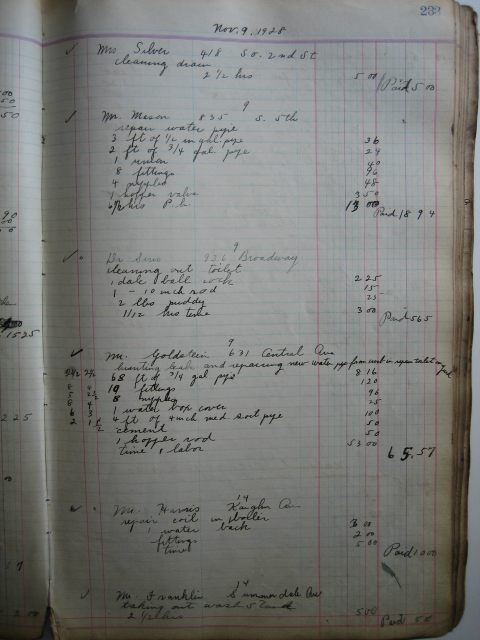 233
Nov. 9, 1928
✓ Mrs Silver 418 So. 2nd St
cleaning drain
2 1/2 hrs 5 00 Paid 5 00
9
✓ Mr. Mason 835 S. 5th
repair water pipe
3 ft of 1/2 in gal pipe 36
2 ft of 3/4 gal pipe 24
1 union 40
8 fittings 96
4 nipples 48
1 hopper valve 3 50
6 1/2 hrs P.h 13 00 Paid 18 94
9
✓ Dr 936 Broadway
cleaning out toilet
1 dale ball cock 2 25
1 - 10 inch rod 15
2 lbs puddy 25
1 1/2 hrs time 3 00 Paid 5 65
9
✓ Mr. Goldstein 631 Central Ave
hunting leak and repairing new water pipe from
68 ft of 3/4 gal pipe 8 16
10 fittings 1 20
8 nipples 96
1 water box cover 25
4 ft of 4 inch med soil pipe 1 00
cement 50
1 hopper rod 50
time & labor 53 00
65.57
14
Mr. Harris Ave
repair coil in boiler 3 00
1 water back 2 00
fittings
time 5 00 Paid 10 00
14
✓ Mr. Franklin Ave
taking out wash stand
2 1/2 hrs 5 00 Paid 5 0
15 25
2 25